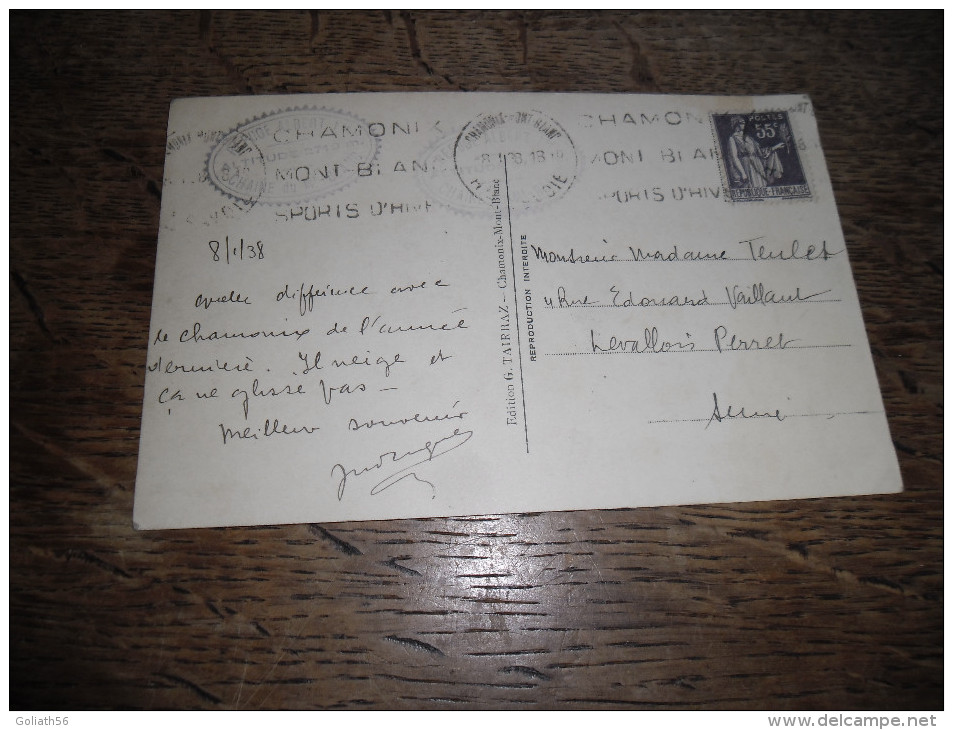 CHAMONIX
MONT-BLANC
SPORTS D'HIVE
CHAMONIX MONT BLANC
-8.1.38.18
CHAMONI
MONT BLA
SPORTS D'HIVE
POSTES
55c
REPUBLIQUE-FRANÇAISE
8/1/38
quelle différence avec
le chamonix de l'année
dernière. Il neige et
ça ne glisse pas —
Meilleur souvenir
Edition G. TAIRRAZ — Chamonix-Mont-Blanc
REPRODUCTION INTERDITE
Monsieur Madame Teulet
4 Rue Edouard Vaillant
Levallois Perret
Seine
Goliath56
www.delcampe.net